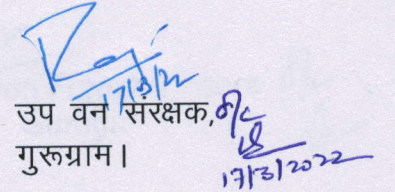 17/3/22
उप वन संरक्षक,
गुरूग्राम।
17/3/2022